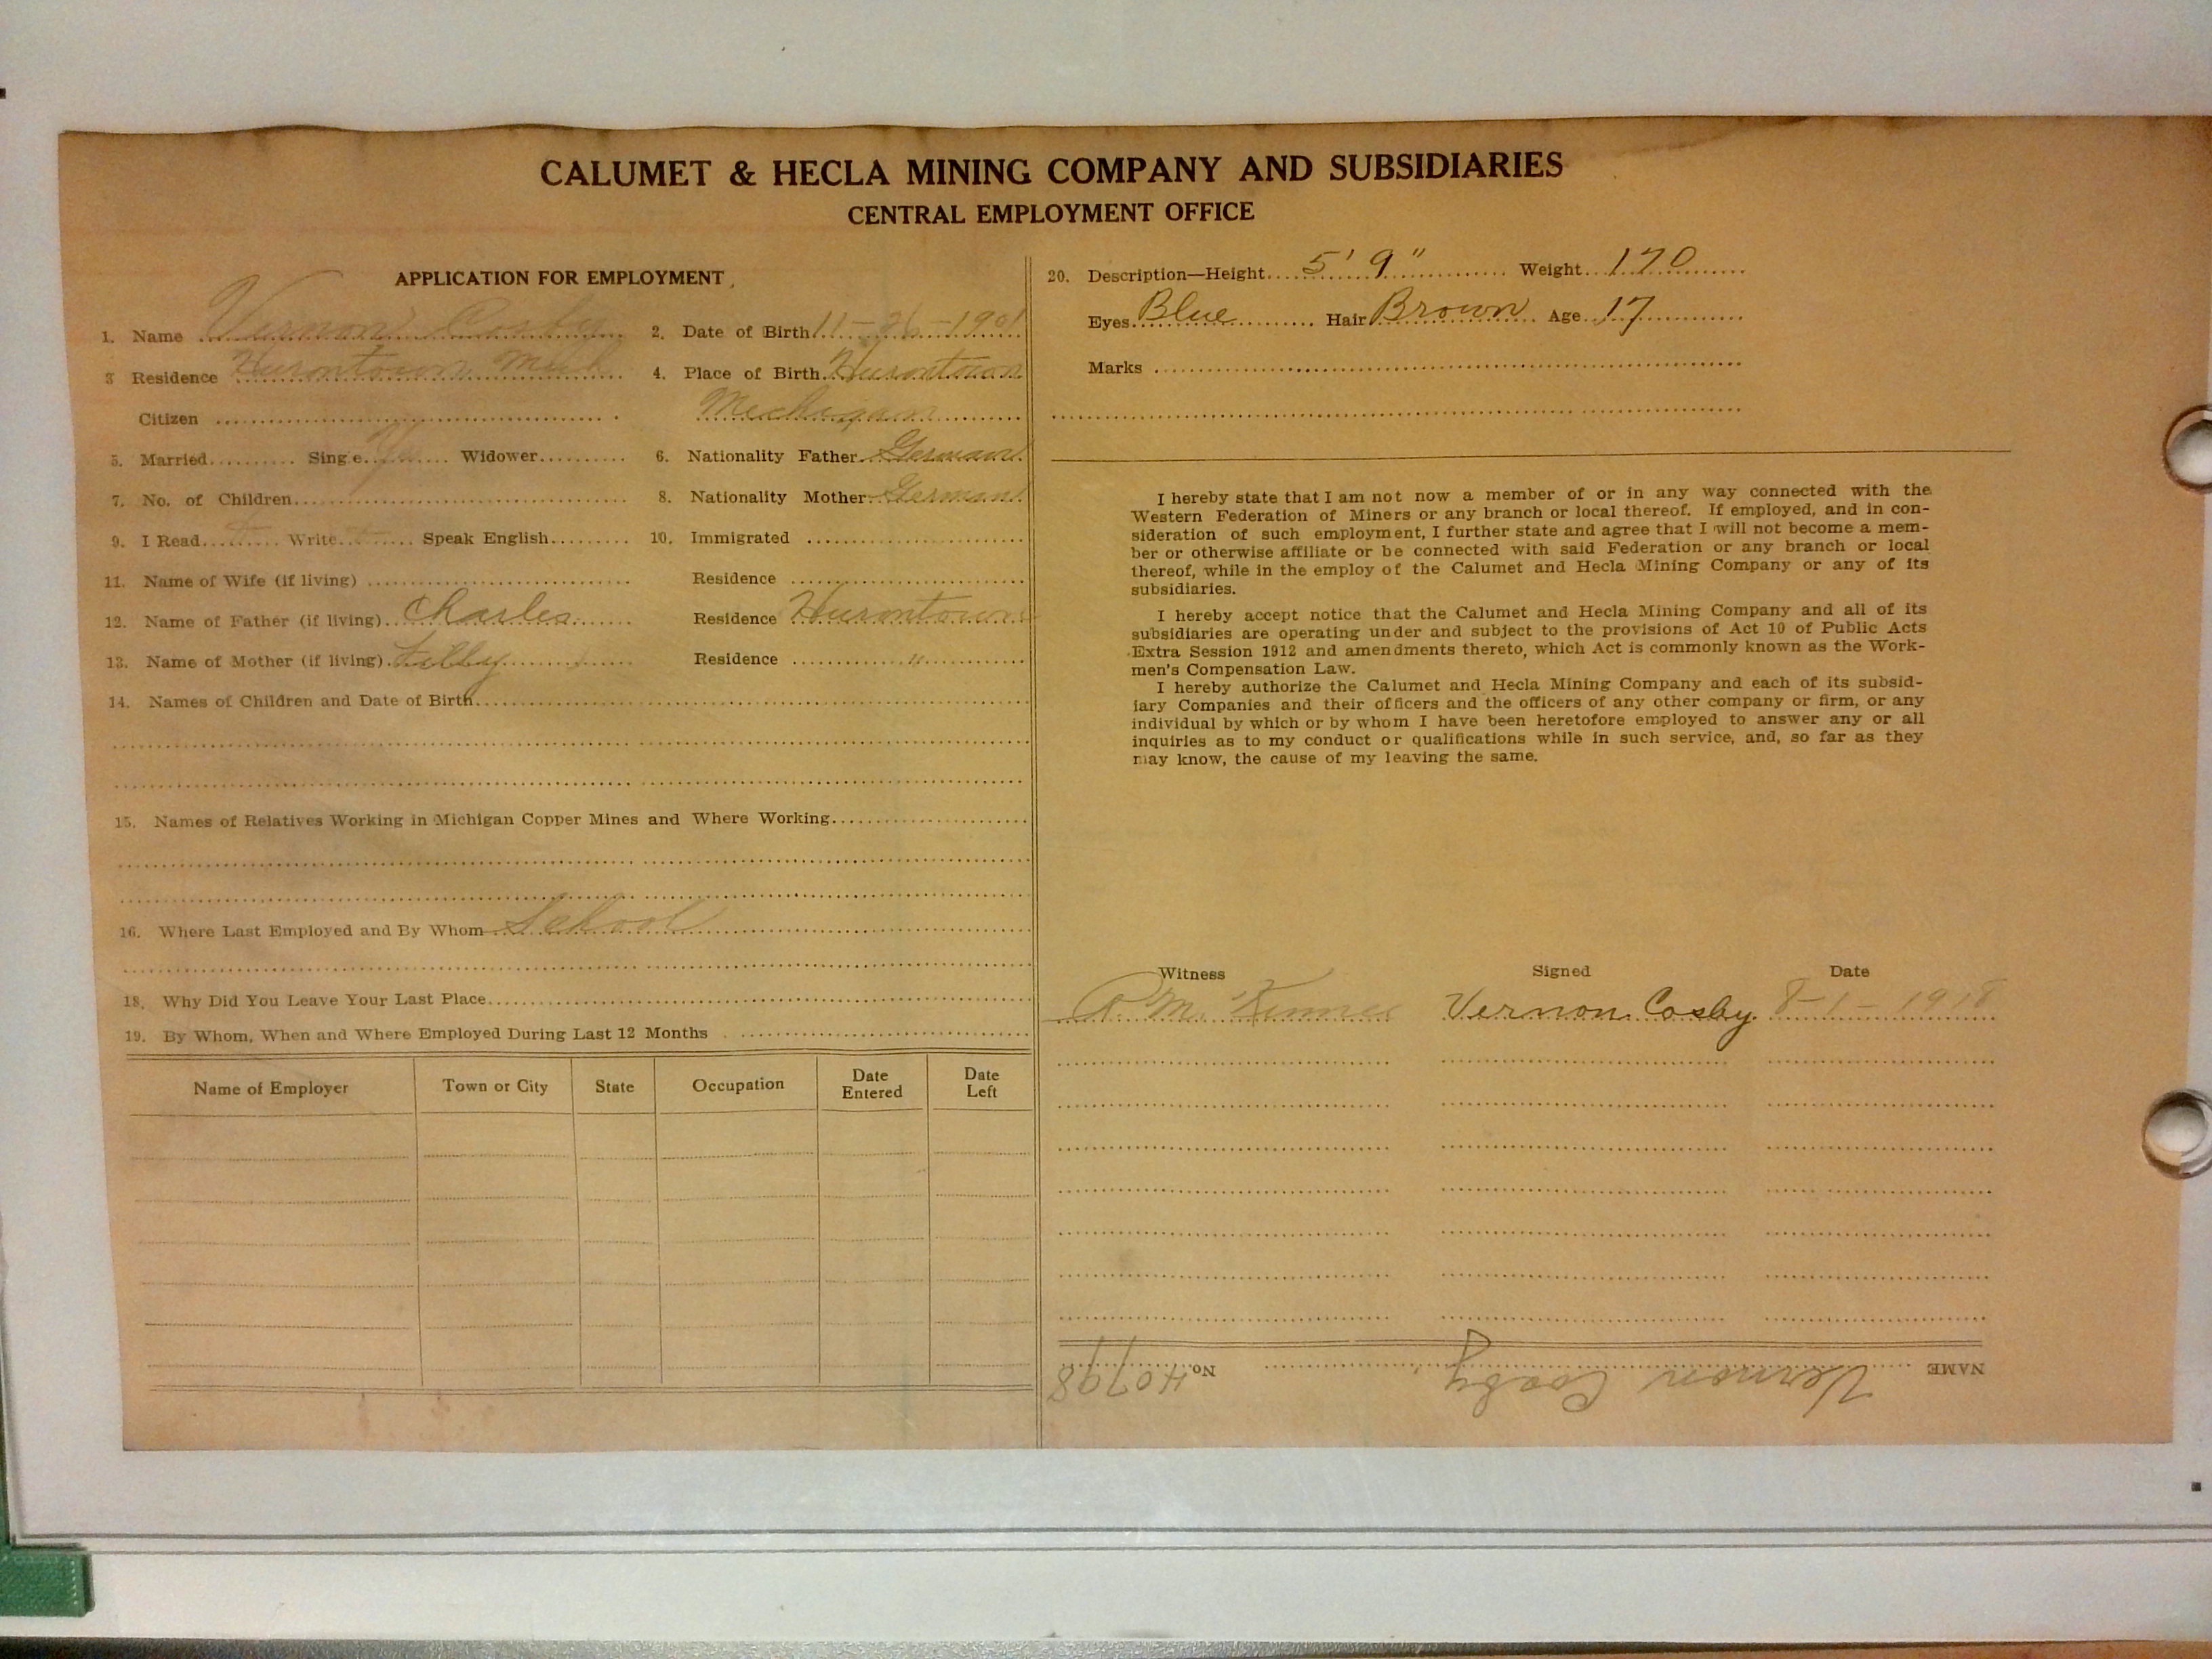 CALUMET & HECLA MINING COMPANY AND SUBSIDIARIES
CENTRAL EMPLOYMENT OFFICE
APPLICATION FOR EMPLOYMENT
1. Name Vernon Cosby 2. Date of Birth 11-26-1901
3 Residence Hurontown Mich 4. Place of Birth Hurontown
Citizen Michigan
5. Married Sing e Widower 6. Nationality Father German
7. No. of Children 8. Nationality Mother German
9. I Read Write Speak English 10. Immigrated
11. Name of Wife (if living) Residence
12. Name of Father (if living) Charles Residence Hurontown
13. Name of Mother (if living) Lilly Residence "
14. Names of Children and Date of Birth
15. Names of Relatives Working in Michigan Copper Mines and Where Working
16. Where Last Employed and By Whom School
18. Why Did You Leave Your Last Place
19. By Whom, When and Where Employed During Last 12 Months
Name of Employer Town or City State Occupation Date Entered Date Left
20. Description—Height 5' 9" Weight 170
Eyes Blue Hair Brown Age 17
Marks
I hereby state that I am not now a member of or in any way connected with the
Western Federation of Miners or any branch or local thereof. If employed, and in con-
sideration of such employment, I further state and agree that I will not become a mem-
ber or otherwise affiliate or be connected with said Federation or any branch or local
thereof, while in the employ of the Calumet and Hecla Mining Company or any of its
subsidiaries.
I hereby accept notice that the Calumet and Hecla Mining Company and all of its
subsidiaries are operating under and subject to the provisions of Act 10 of Public Acts
Extra Session 1912 and amendments thereto, which Act is commonly known as the Work-
men's Compensation Law.
I hereby authorize the Calumet and Hecla Mining Company and each of its subsid-
iary Companies and their officers and the officers of any other company or firm, or any
individual by which or by whom I have been heretofore employed to answer any or all
inquiries as to my conduct or qualifications while in such service, and, so far as they
may know, the cause of my leaving the same.
Witness Signed Date
Vernon Cosby 8-1-1918
NAME Vernon Cosby No. 40798